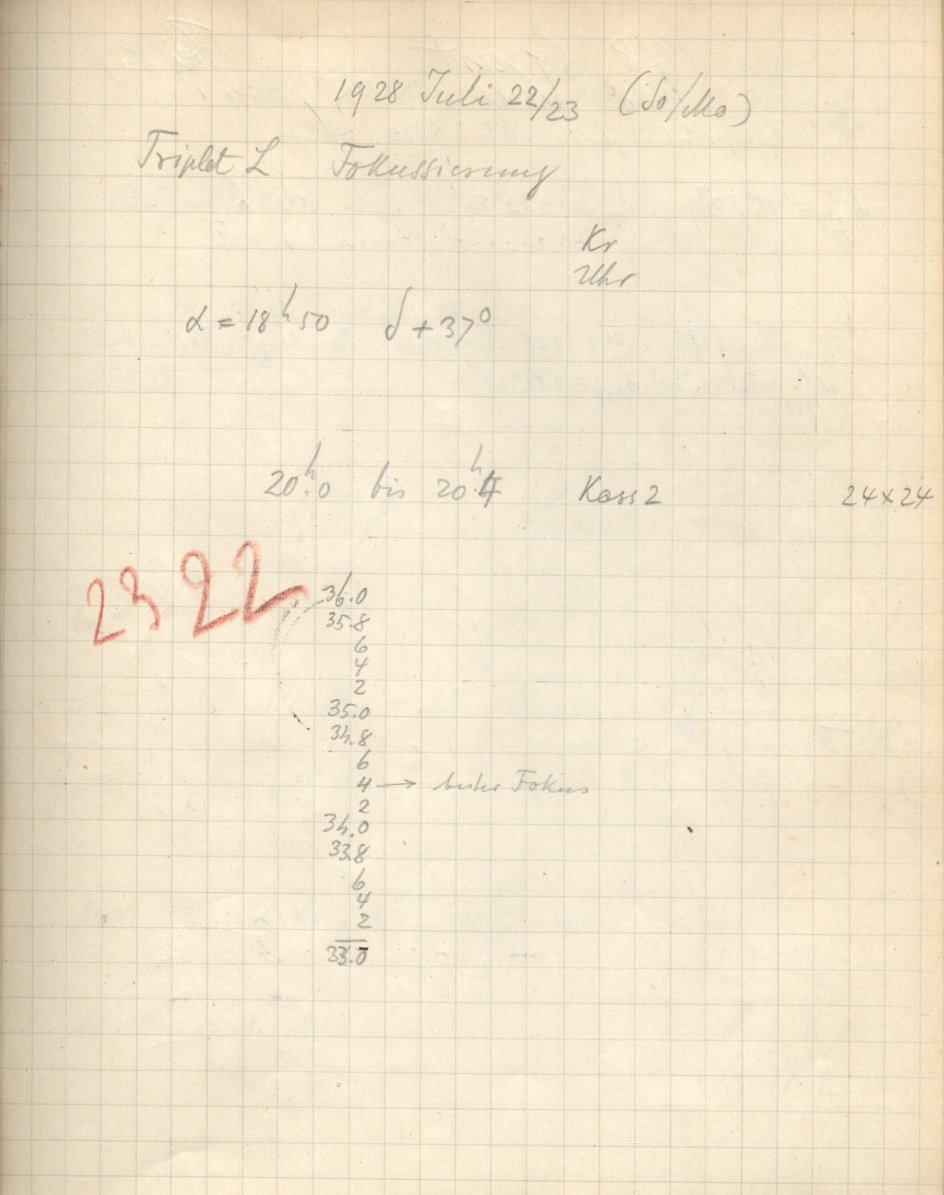 1928 Juli 22/23 (So/Mo)
Triplet L Fokussierung
Kr
Uhr
α = 18h50 δ + 37°
20h.0 bis 20h.4 Kass 2 24×24
23 22
36.0
35.8
6
4
2
35.0
34.8
6
4 → bester Fokus
2
34.0
33.8
6
4
2
33.0